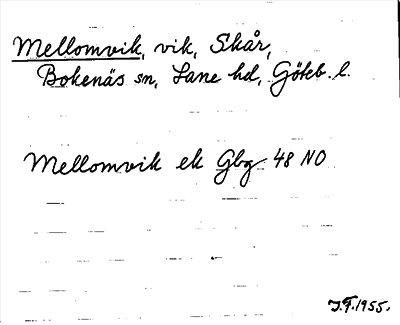 Mellomvik, vik, Skår,
Bokenäs sn, Lane hd, Göteb. l.
Mellomvik ek Gbg 48 NO
J.F. 1955.